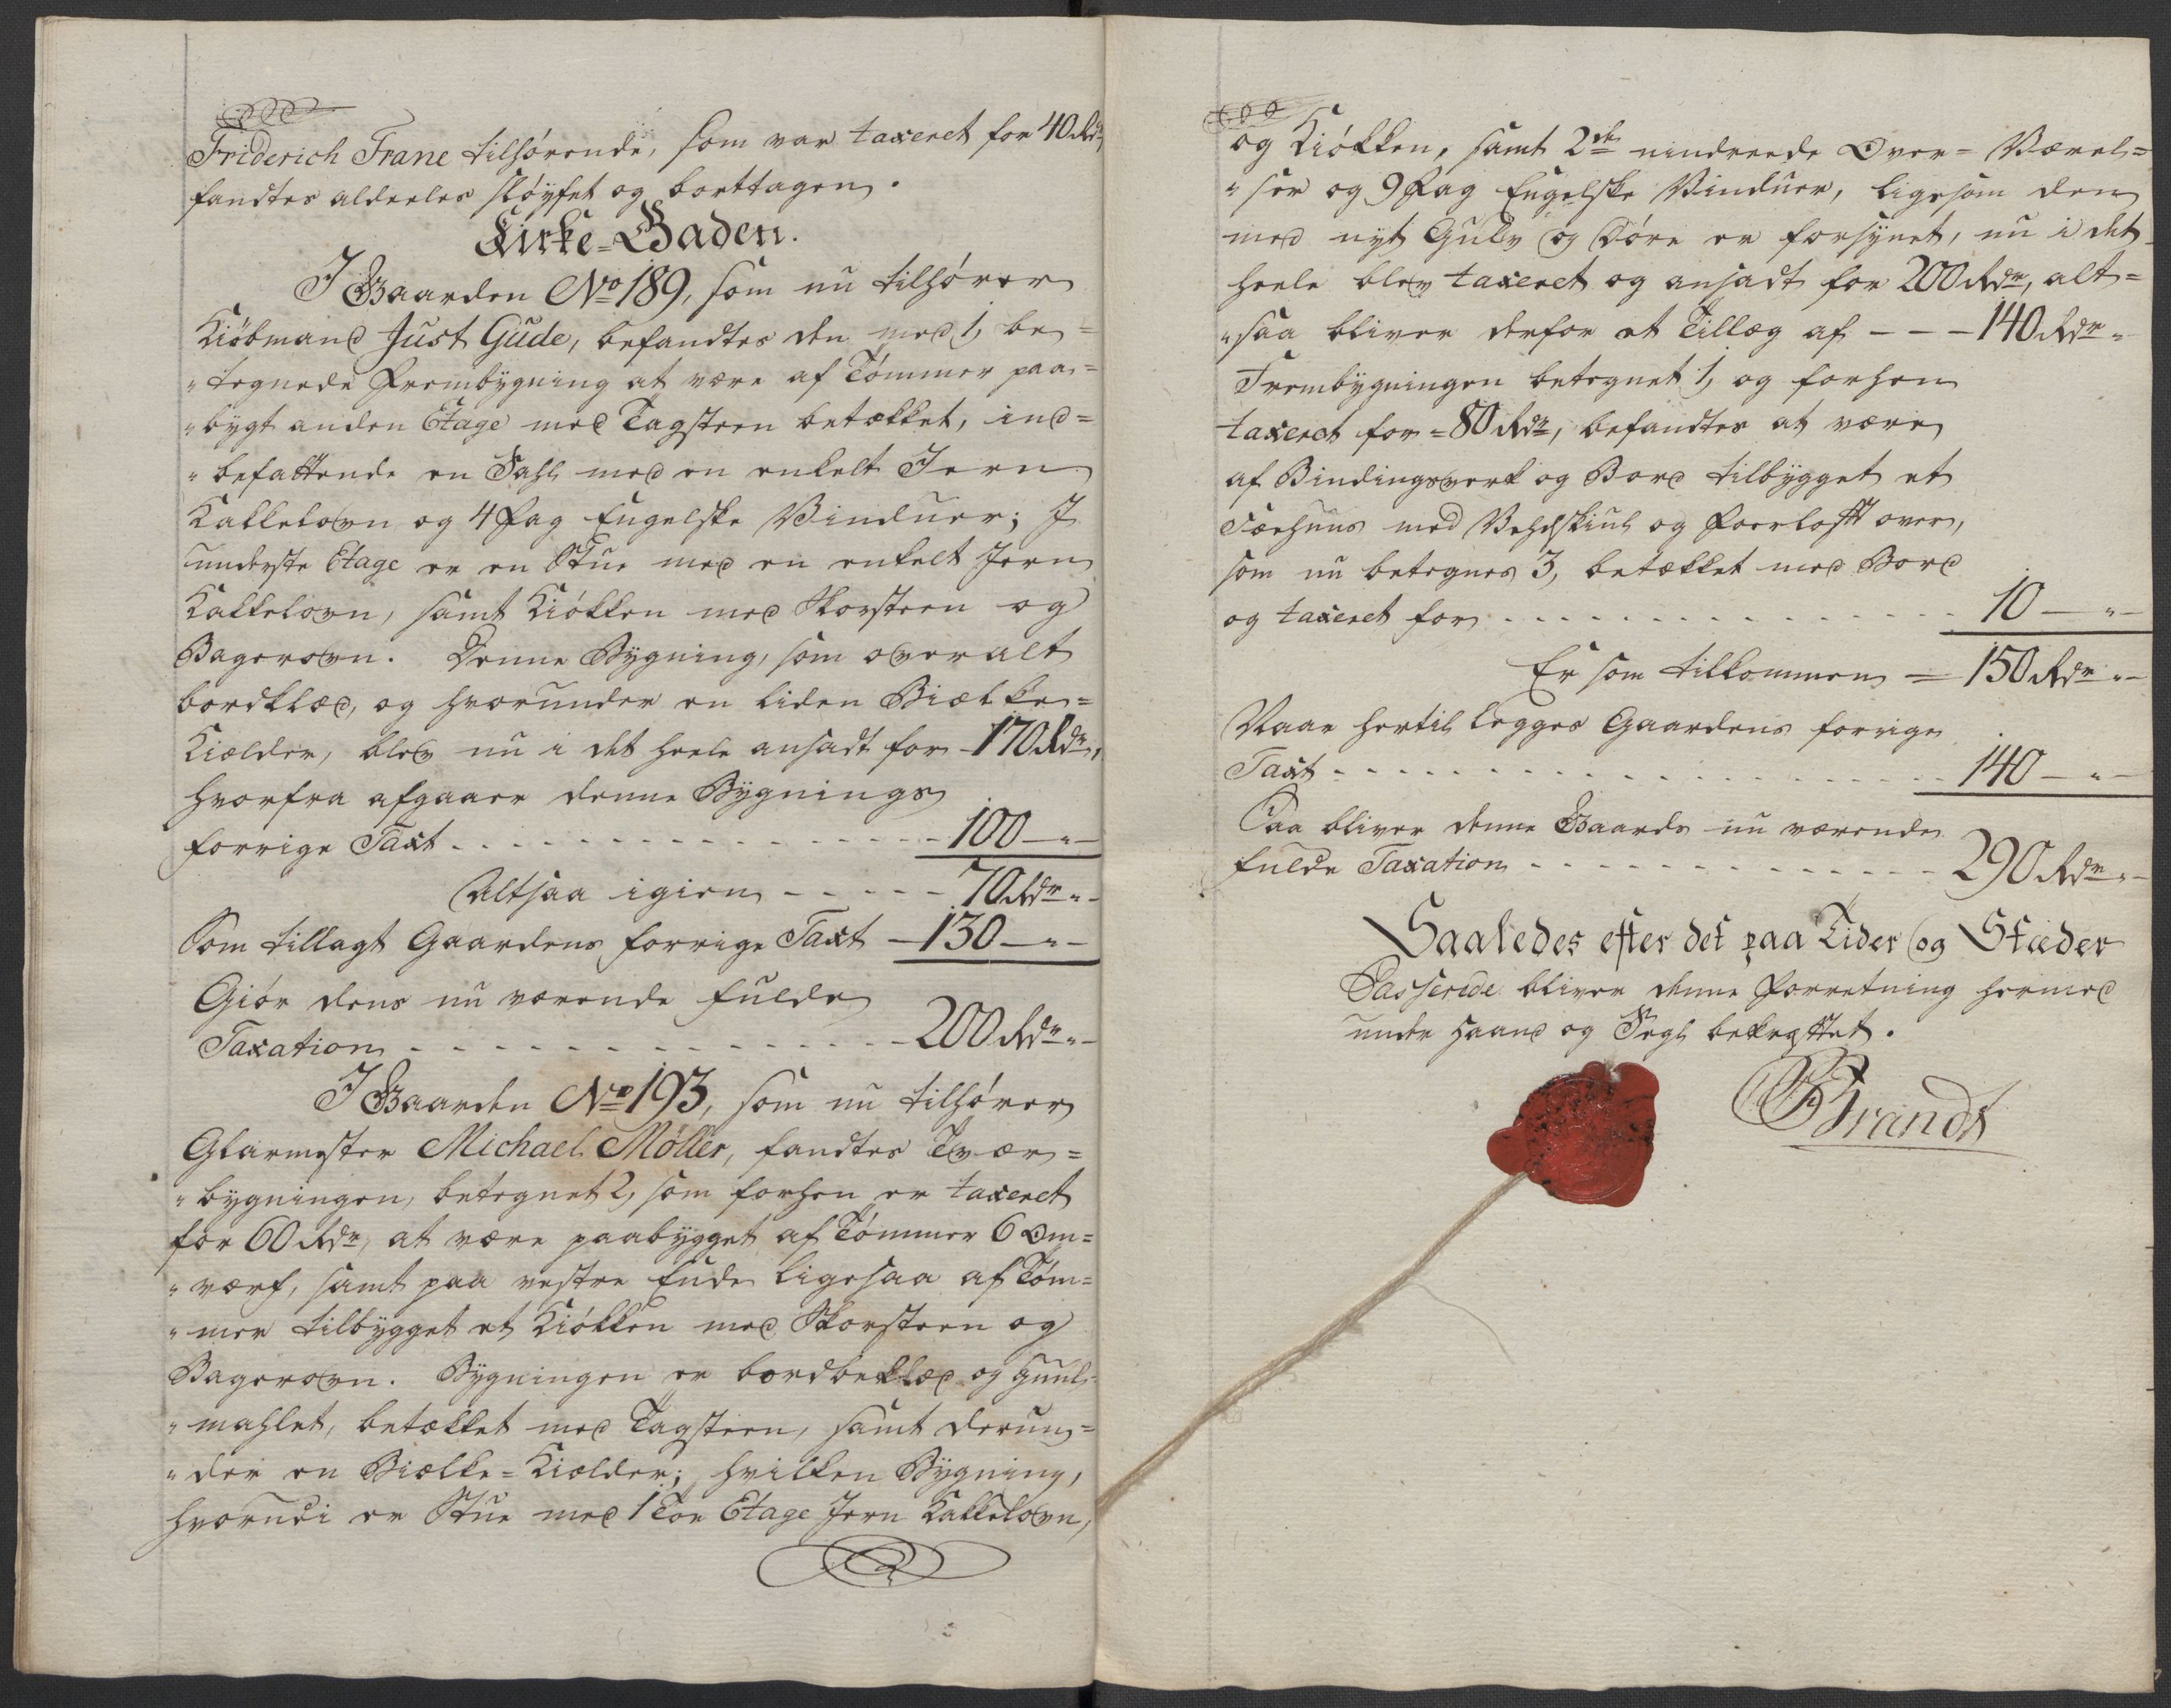 Friderich Trane tilhørende, som var taxeret for 40 Rdr,
fandtes aldeeles sløyfet og borttagen.
Kirke-Gaden.
I Gaarden No 189, som nu tilhører
Kiøbmand Just Gude, befandtes den med 1, be=
"tegnede Frembygning at være af Tømmer paa=
"bygt anden Etage med Tagsteen betækket, ind=
"befattende en Sahl med en enkelt Jern
Kakkelovn og 4 Fag Engelske Vinduer; I
underste Etage er en Stue med en enkelt Jern
Kakkelovn, samt Kiøkken med Skorsteen og
Bagerovn. Denne Bygning, som overalt
bordklæd, og hvorunder en liden Biælke=
Kiælder, blev nu i det heele ansadt for - 170 Rdr,
hvorfra afgaaer denne Bygnings
forrige Taxt - - - - - 100 — " —
Altsaa igien - - - - - 70 Rdr " -
Som tillagt Gaardens forrige Taxt — 130 — " —
Giør dens nu værende fulde
Taxation - - - - - 200 Rdr " -
I Gaarden No 193, som nu tilhører
Glarmester Michael Møller, fandtes Tvær=
"bygningen, betegnet 2, som forhen er taxeret
for 60 Rdr, at være paabygget af Tømmer 6 Om=
"værf, samt paa vestre Ende ligesaa af Tøm=
"mer tilbygget et Kiøkken med Skorsteen og
Bagerovn. Bygningen er bordbeklæd og guul=
"mahlet, betækket med Tagsteen, samt derun=
"der en Biælke=Kiælder; hvilken Bygning,
hvorudi er Stue med 1 Toe Etage Jern Kakkelovn,
og Kiøkken, samt 2de indreede Over=Værel=
"ser og 9 Fag Engelske Vinduer, ligesom den
med nyt Gulv og Døre er forsynet, nu i det
heele blev taxeret og ansadt for 200 Rdr, alt=
"saa bliver derfor et Tillæg af - - - 140 Rdr "
Frembygningen betegnet 1, og forhen
taxeret for = 80 Rdr, befandtes at være
af Bindingsverk og Bord tilbygget et
Fæehuus med Vehdskiul og Foerloft over,
som nu betegnes 3, betækket med Bord
og taxeret for - - - - - 10 — " —
Er som tilkommen = 150 Rdr " -
Naar hertil legges Gaardens forrige
Taxt - - - - - 140 — " —
Saa bliver denne Gaards nu værende
fulde Taxation - - - - - 290 Rdr " -
Saaledes efter det paa Tider og Stæder
Passerede bliver denne Forretning hermed
under Haand og Segl bekræftet.
Brandt